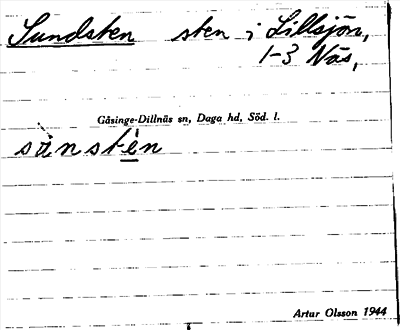 Sundsten sten i Lillsjön,
1-3 Näs,
Gåsinge-Dillnäs sn, Daga hd, Söd. l.
sànstèn
Artur Olsson 1944